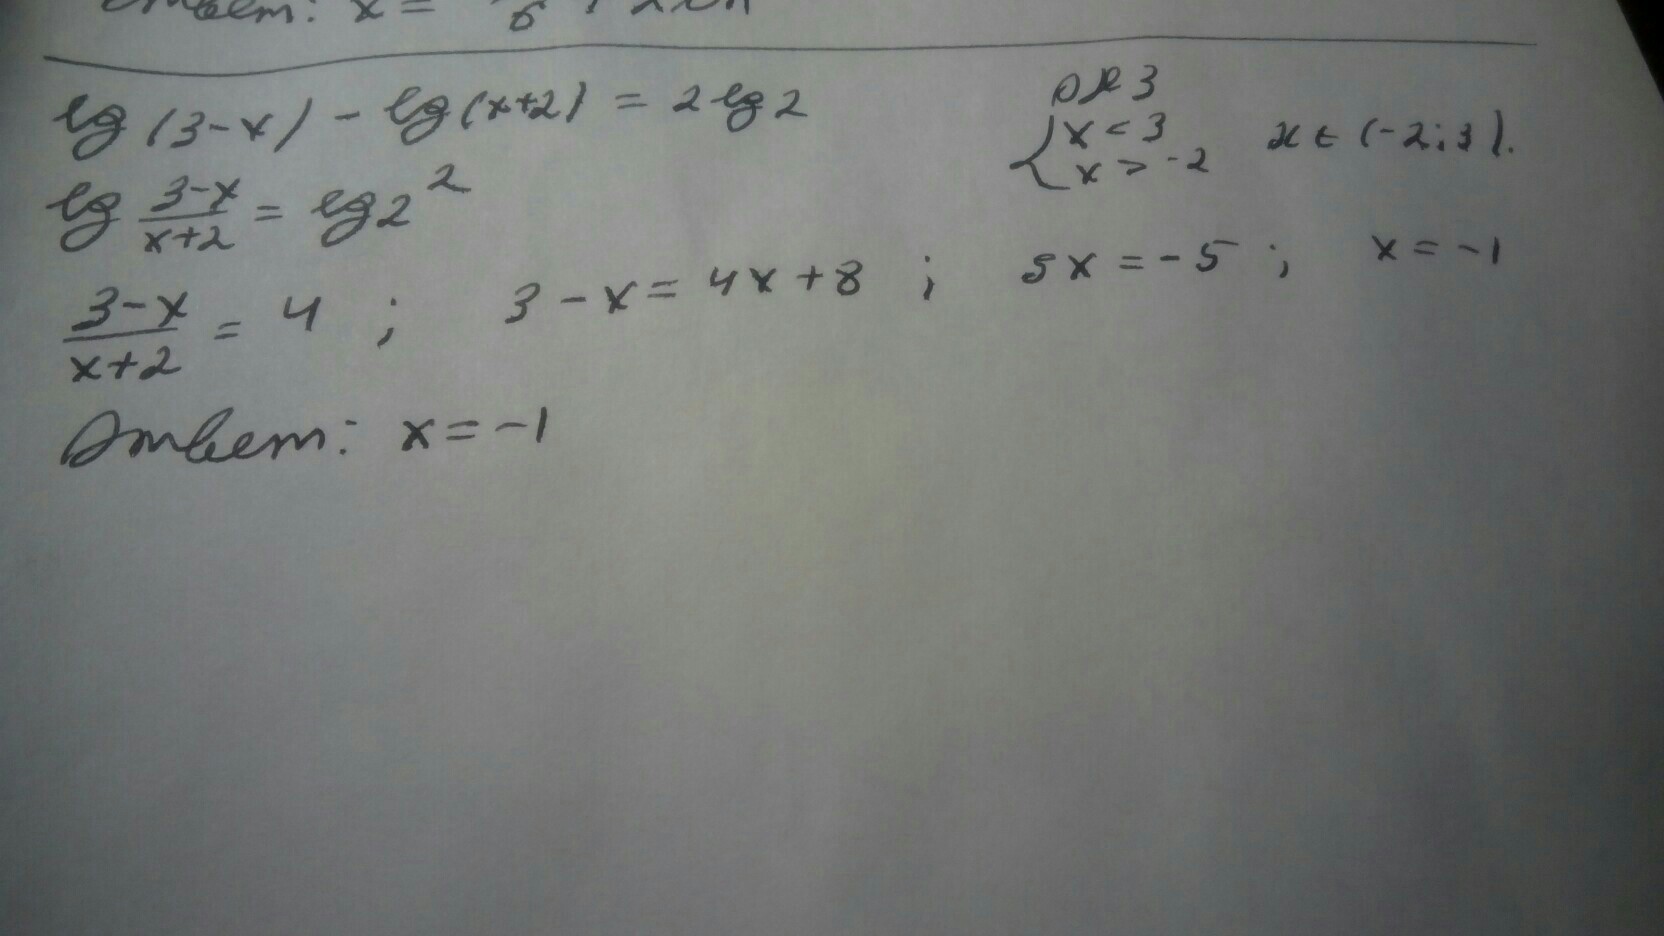 Ответ: x =
lg (3-x) - lg (x+2) = 2 lg 2
ОДЗ
{ x < 3
x > -2
x ∈ (-2; 3).
lg (3-x)/(x+2) = lg 2²
(3-x)/(x+2) = 4 ; 3 - x = 4x + 8 ; 5x = -5 ; x = -1
Ответ: x = -1